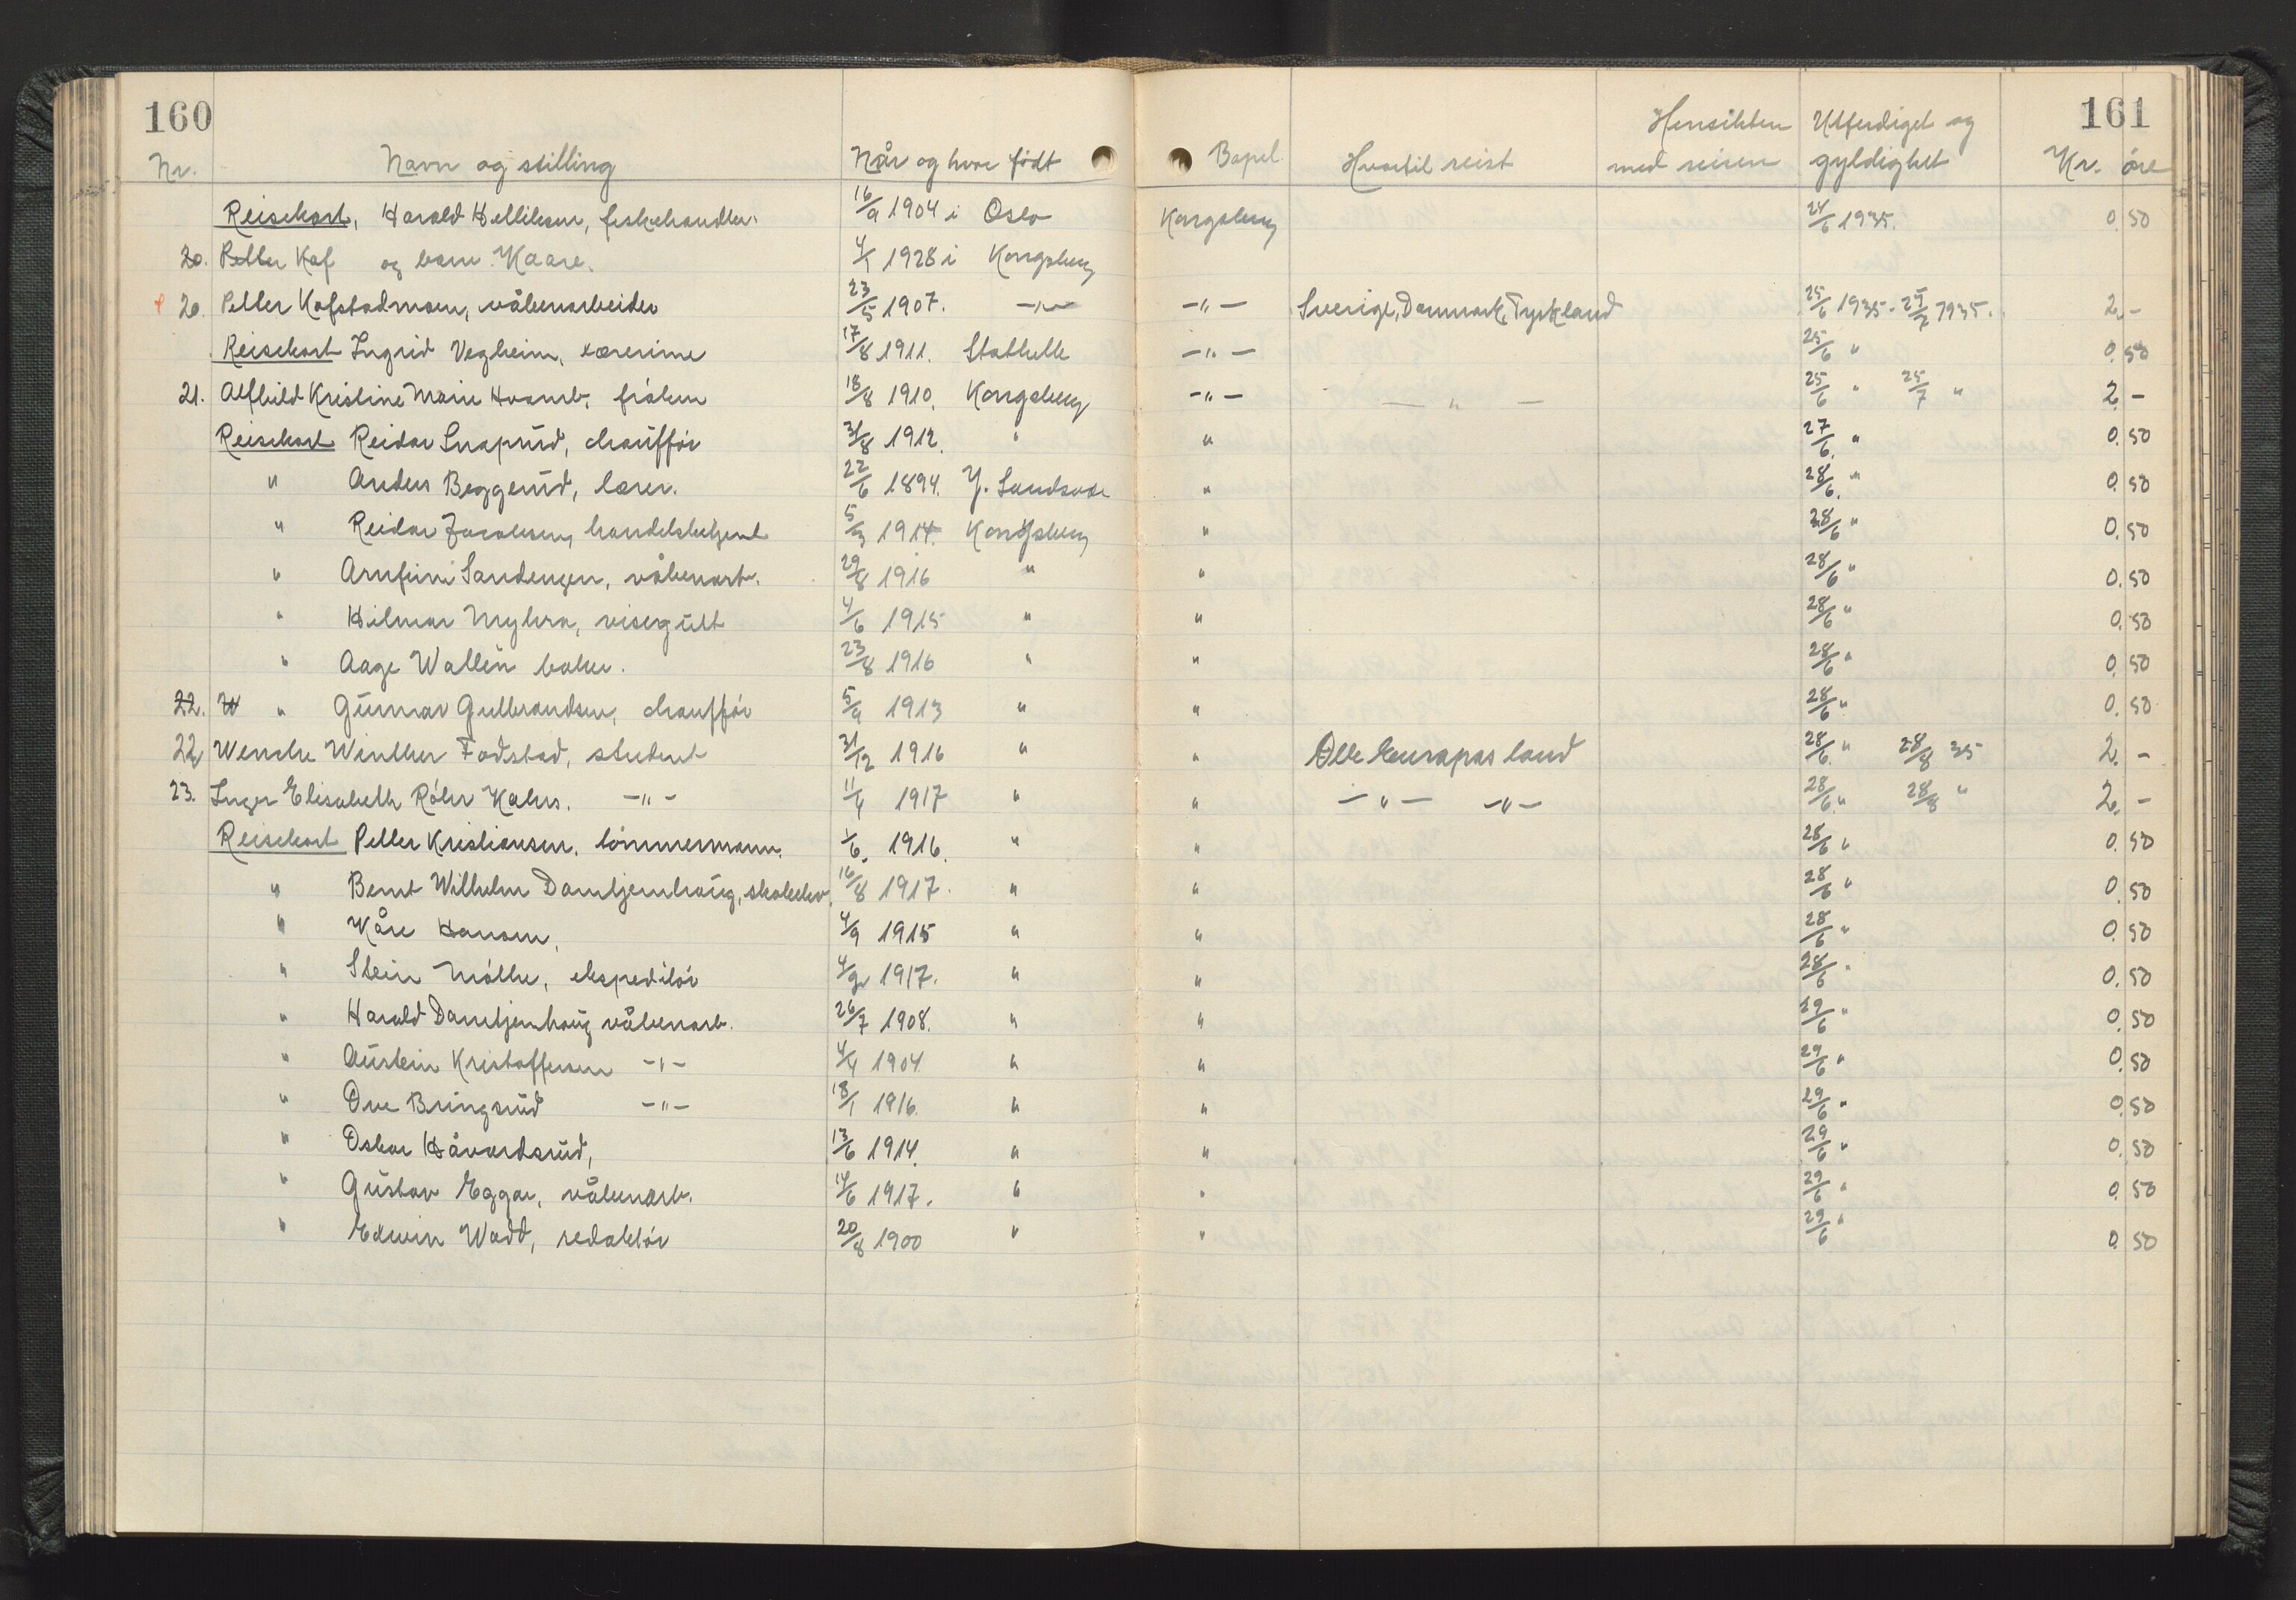 160 161
Nr. Navn og stilling Når og hvor født Bopel Hvortil reist Hensikten med reisen Utferdiget og gyldighet Kr. øre
Reisekort, Harald Helliksen, fiskehandler. 16/9 1904 i Oslo Kongsberg 24/6 1935. 0.50
20. Petter Kof og barn Kaare. 4/1 1928 i Kongsberg
20. Petter Kofstadmoen, våbenarbeider 23/5 1907. -"- -"- Sverige, Danmark, Tyskland 25/6 1935 - 25/7 1935. 2.-
Reisekort Ingrid Vegheim, lærerinne 17/8 1911. Stathelle -"- 25/6 " 0.50
21. Alfhild Kristine Marie Hvamb, frøken 18/8 1910. Kongsberg -"- - " - 25/6 " 25/7 " 2.-
Reisekort Reidar Snaprud, chauffør 31/8 1912. " " 27/6. " 0.50
" Anders Beggerud, lærer. 22/6 1894. Y. Sandsvær " 28/6. " 0.50
" Reidar Jacobsen, handelsbetjent 5/3 1914. Kongsberg " 28/6 " 0.50
" Arnfinn Sandengen, våbenarb. 29/8 1916 " " 28/6 " 0.50
" Hilmar Myhra, visergutt 4/6 1915 " " 28/6 " 0.50
" Aage Wallin baker. 23/8 1916 " " 28/6 " 0.50
22. W " Gunnar Gulbrandsen, chauffør 5/9 1913 " " 28/6 " 0.50
22 Wenche Winther Fodstad, student 31/12 1916 " " Alle Europas land 28/6. " 28/8 35 2.-
23. Inger Elisabeth Röhr Kahrs. -"- 11/4 1917 " " -"- -"- 28/6. " 28/8 " 2.-
Reisekort Petter Kristiansen, tømmermann. 1/6. 1916. " " 28/6 " 0.50
" Bernt Wilhelm Damtjernhaug, skoleelev. 16/8 1917. " " 28/6 " 0.50
" Kåre Hansen, 4/9 1915 " " 28/6 " 0.50
" Stein Møller, ekspeditør 4/2 1917. " " 28/6 " 0.50
" Harald Damtjernhaug våbenarb. 26/7 1908. " " 29/6 " 0.50
" Austein Kristoffersen -"- 4/4 1904 " " 29/6 " 0.50
" Ove Bringsrud -"- 18/1 1916. " " 29/6 " 0.50
" Oskar Håvardsrud, 13/6 1914. " " 29/6 " 0.50
" Gustav Eggar, våbenarb. 14/6 1917. " " 29/6 " 0.50
" Edwin Wadd, redaktør 20/8 1900 " " 29/6 " 0.50